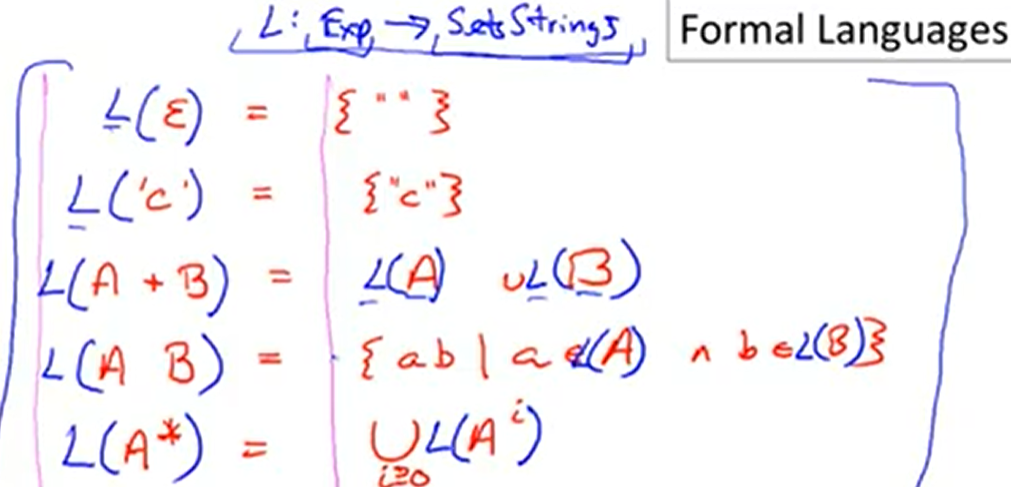 L: Exp → Sets Strings
Formal Languages
L(ε) = {""}
L('c') = {"c"}
L(A + B) = L(A) ∪ L(B)
L(A B) = {ab | a ∈ L(A) ∧ b ∈ L(B)}
L(A*) = ⋃i≥0 L(Aⁱ)